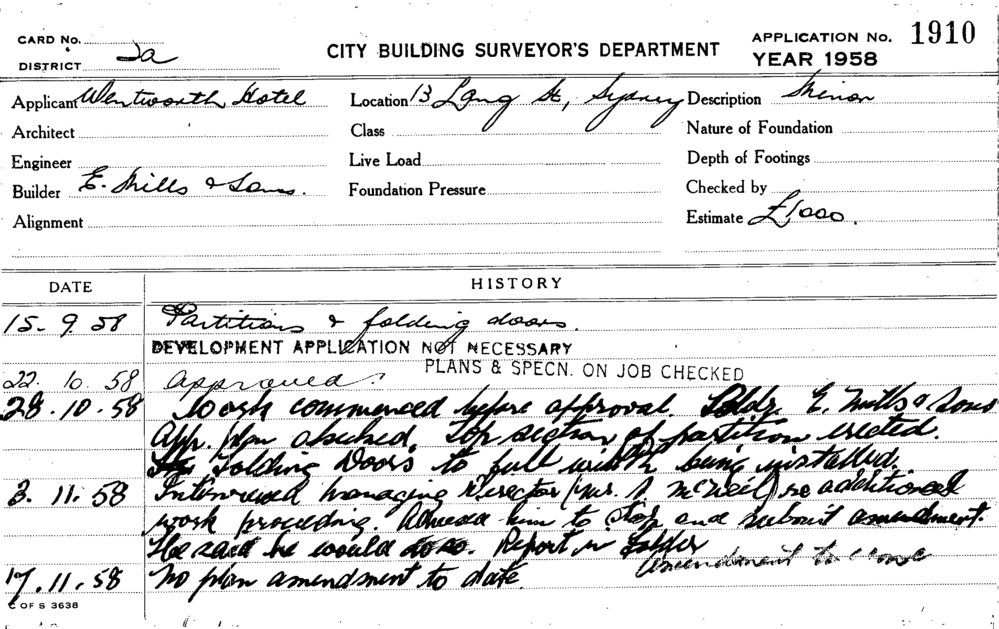 CARD No.
DISTRICT 2a
CITY BUILDING SURVEYOR'S DEPARTMENT
APPLICATION No. 1910
YEAR 1958
Applicant Wentworth Hotel
Location 13 Lang St, Sydney
Description Minor
Architect
Class
Nature of Foundation
Engineer
Live Load
Depth of Footings
Builder E. Mills & Sons.
Foundation Pressure
Checked by
Alignment
Estimate £1000.
DATE
HISTORY
15. 9. 58 Partitions & folding doors.
DEVELOPMENT APPLICATION NOT NECESSARY
PLANS & SPECN. ON JOB CHECKED
22. 10. 58 Approved.
28. 10. 58 Work commenced before approval. Bldr. E. Mills & Sons
App. plan checked. Top section of partition erected.
Folding Doors to full width being installed.
3. 11. 58 Interviewed managing Director (Mr. McNeil) re additional
work proceding. Advised him to stop and submit amendment.
He said he would do so. Report in folder
Amendment to come
17. 11. 58 No plan amendment to date
C OF S 3638